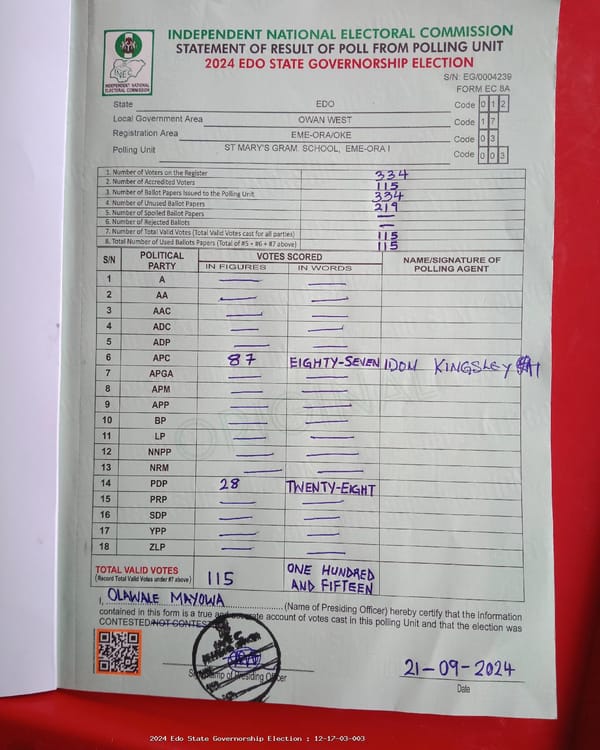 INDEPENDENT NATIONAL ELECTORAL COMMISSION
STATEMENT OF RESULT OF POLL FROM POLLING UNIT
2024 EDO STATE GOVERNORSHIP ELECTION
INEC
INDEPENDENT NATIONAL
ELECTORAL COMMISSION
S/N: EG/0004239
FORM EC 8A
State EDO Code 0 1 2
Local Government Area OWAN WEST Code 1 7
Registration Area EME-ORA/OKE Code 0 3
Polling Unit ST MARY'S GRAM. SCHOOL, EME-ORA I Code 0 0 3
1. Number of Voters on the Register 334
2. Number of Accredited Voters 115
3. Number of Ballot Papers Issued to the Polling Unit 334
4. Number of Unused Ballot Papers 219
5. Number of Spoiled Ballot Papers —
6. Number of Rejected Ballots —
7. Number of Total Valid Votes (Total Valid Votes cast for all parties) 115
8. Total Number of Used Ballots Papers (Total of #5 + #6 + #7 above) 115
S/N POLITICAL PARTY VOTES SCORED NAME/SIGNATURE OF POLLING AGENT
IN FIGURES IN WORDS
1 A — —
2 AA — —
3 AAC — —
4 ADC — —
5 ADP — —
6 APC 87 EIGHTY-SEVEN IDON KINGSLEY
7 APGA — —
8 APM — —
9 APP — —
10 BP — —
11 LP — —
12 NNPP — —
13 NRM — —
14 PDP 28 TWENTY-EIGHT
15 PRP — —
16 SDP — —
17 YPP — —
18 ZLP — —
TOTAL VALID VOTES 115 ONE HUNDRED
(Record Total Valid Votes under #7 above) AND FIFTEEN
I, OLAWALE MAYOWA (Name of Presiding Officer) hereby certify that the information
contained in this form is a true and accurate account of votes cast in this polling Unit and that the election was
CONTESTED/NOT CONTESTED
Stamp of Presiding Officer
21-09-2024
Date
2024 Edo State Governorship Election : 12-17-03-003